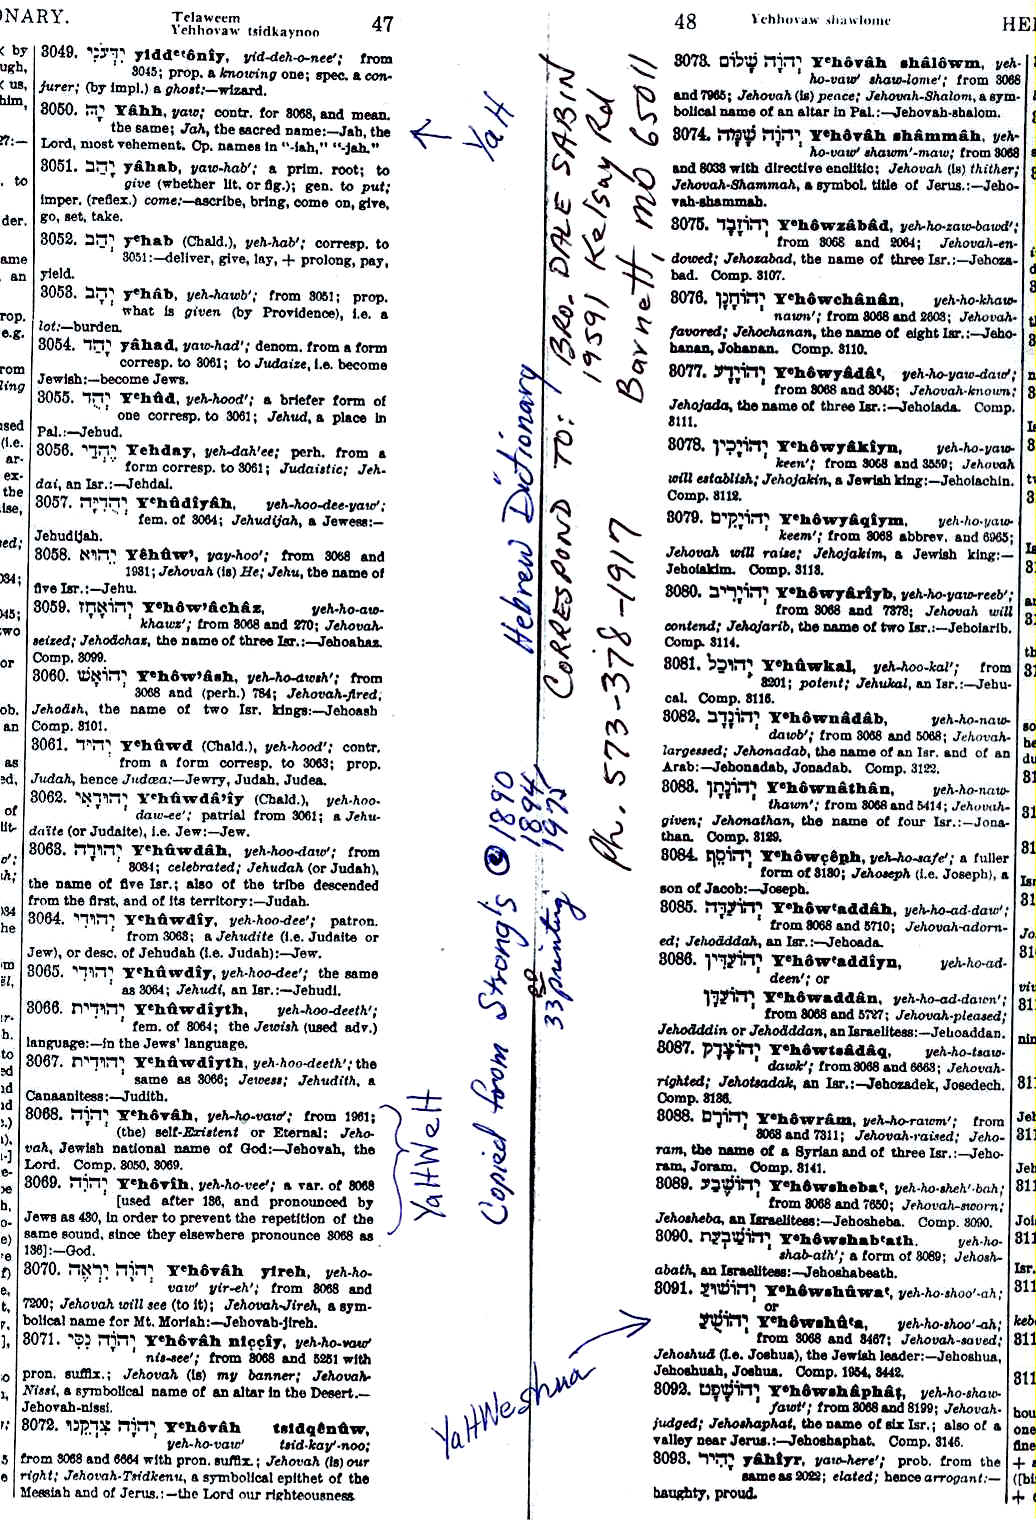 ONARY.
Telaweem
Yehhovaw tsidkaynoo
47
3049. יִדְּעֹנִי yiddᵉʻônîy, yid-deh-o-nee'; from
3045; prop. a knowing one; spec. a con-
jurer; (by impl.) a ghost:—wizard.
3050. יָהּ Yâhh, yaw; contr. for 3068, and mean.
the same; Jah, the sacred name:—Jah, the
Lord, most vehement. Cp. names in "-iah," "-jah."
3051. יָהַב yâhab, yaw-hab'; a prim. root; to
give (whether lit. or fig.); gen. to put;
imper. (reflex.) come:—ascribe, bring, come on, give,
go, set, take.
3052. יְהַב yᵉhab (Chald.), yeh-hab'; corresp. to
3051:—deliver, give, lay, + prolong, pay,
yield.
3053. יְהָב yᵉhâb, yeh-hawb'; from 3051; prop.
what is given (by Providence), i.e. a
lot:—burden.
3054. יָהַד yâhad, yaw-had'; denom. from a form
corresp. to 3061; to Judaize, i.e. become
Jewish:—become Jews.
3055. יְהֻד Yᵉhûd, yeh-hood'; a briefer form of
one corresp. to 3061; Jehud, a place in
Pal.:—Jehud.
3056. יֶהְדַּי Yehday, yeh-dah'ee; perh. from a
form corresp. to 3061; Judaistic; Jeh-
dai, an Isr.:—Jehdai.
3057. יְהֻדִיָּה Yᵉhûdîyâh, yeh-hoo-dee-yaw';
fem. of 3064; Jehudijah, a Jewess:—
Jehudijah.
3058. יֵהוּא Yêhûwʼ, yay-hoo'; from 3068 and
1931; Jehovah (is) He; Jehu, the name of
five Isr.:—Jehu.
3059. יְהוֹאָחָז Yᵉhôwʼâchâz, yeh-ho-aw-
khawz'; from 3068 and 270; Jehovah-
seized; Jehoächaz, the name of three Isr.:—Jehoahaz.
Comp. 3099.
3060. יְהוֹאָשׁ Yᵉhôwʼâsh, yeh-ho-awsh'; from
3068 and (perh.) 784; Jehovah-fired;
Jehoäsh, the name of two Isr. kings:—Jehoash
Comp. 3101.
3061. יְהוּד Yᵉhûwd (Chald.), yeh-hood'; contr.
from a form corresp. to 3063; prop.
Judah, hence Judæa:—Jewry, Judah, Judea.
3062. יְהוּדָאִי Yᵉhûwdâʼîy (Chald.), yeh-hoo-
daw-ee'; patrial from 3061; a Jehu-
daïte (or Judaite), i.e. Jew:—Jew.
3063. יְהוּדָה Yᵉhûwdâh, yeh-hoo-daw'; from
3034; celebrated; Jehudah (or Judah),
the name of five Isr.; also of the tribe descended
from the first, and of its territory:—Judah.
3064. יְהוּדִי Yᵉhûwdîy, yeh-hoo-dee'; patron.
from 3063; a Jehudite (i.e. Judaite or
Jew), or desc. of Jehudah (i.e. Judah):—Jew.
3065. יְהוּדִי Yᵉhûwdîy, yeh-hoo-dee'; the same
as 3064; Jehudi, an Isr.:—Jehudi.
3066. יְהוּדִית Yᵉhûwdîyth, yeh-hoo-deeth';
fem. of 3064; the Jewish (used adv.)
language:—in the Jews' language.
3067. יְהוּדִית Yᵉhûwdîyth, yeh-hoo-deeth'; the
same as 3066; Jewess; Jehudith, a
Canaanitess:—Judith.
3068. יְהֹוָה Yᵉhôvâh, yeh-ho-vaw'; from 1961;
(the) self-Existent or Eternal; Jeho-
vah, Jewish national name of God:—Jehovah, the
Lord. Comp. 3050, 3069.
3069. יְהֹוִה Yᵉhôvîh, yeh-ho-vee'; a var. of 3068
[used after 136, and pronounced by
Jews as 430, in order to prevent the repetition of the
same sound, since they elsewhere pronounce 3068 as
136]:—God.
3070. יְהֹוָה יִרְאֶה Yᵉhôvâh yireh, yeh-ho-
vaw' yir-eh'; from 3068 and
7200; Jehovah will see (to it); Jehovah-Jireh, a sym-
bolical name for Mt. Moriah:—Jehovah-jireh.
3071. יְהֹוָה נִסִּי Yᵉhôvâh niççîy, yeh-ho-vaw'
nis-see'; from 3068 and 5251 with
pron. suffix.; Jehovah (is) my banner; Jehovah-
Nissi, a symbolical name of an altar in the Desert.—
Jehovah-nissi.
3072. יְהֹוָה צִדְקֵנוּ Yᵉhôvâh tsidqênûw,
yeh-ho-vaw' tsid-kay'-noo;
from 3068 and 6664 with pron. suffix.; Jehovah (is) our
right; Jehovah-Tsidkenu, a symbolical epithet of the
Messiah and of Jerus.:—the Lord our righteousness
YaH
YaHWeH
YaHWeshua
Copied from Strong's © 1890
1894
1975
33rd printing
Hebrew Dictionary
CORRESPOND TO: BRO. DALE SABIN
19591 Kelsay Rd
Barnett, MO 65011
Ph. 573-378-1917
48
Yehhovaw shawlome
HE
3073. יְהֹוָה שָׁלוֹם Yᵉhôvâh shâlôwm, yeh-
ho-vaw' shaw-lome'; from 3068
and 7965; Jehovah (is) peace; Jehovah-Shalom, a sym-
bolical name of an altar in Pal.:—Jehovah-shalom.
3074. יְהֹוָה שָׁמָּה Yᵉhôvâh shâmmâh, yeh-
ho-vaw' shawm'-maw; from 3068
and 8033 with directive enclitic; Jehovah (is) thither;
Jehovah-Shammah, a symbol. title of Jerus.:—Jeho-
vah-shammah.
3075. יְהוֹזָבָד Yᵉhôwzâbâd, yeh-ho-zaw-bawd';
from 3068 and 2064; Jehovah-en-
dowed; Jehozabad, the name of three Isr.:—Jehoza-
bad. Comp. 3107.
3076. יְהוֹחָנָן Yᵉhôwchânân, yeh-ho-khaw-
nawn'; from 3068 and 2603; Jehovah-
favored; Jehochanan, the name of eight Isr.:—Jeho-
hanan, Johanan. Comp. 3110.
3077. יְהוֹיָדָע Yᵉhôwyâdâʻ, yeh-ho-yaw-daw';
from 3068 and 3045; Jehovah-known;
Jehojada, the name of three Isr.:—Jehoiada. Comp.
3111.
3078. יְהוֹיָכִין Yᵉhôwyâkîyn, yeh-ho-yaw-
keen'; from 3068 and 3559; Jehovah
will establish; Jehojakin, a Jewish king:—Jehoiachin.
Comp. 3112.
3079. יְהוֹיָקִים Yᵉhôwyâqîym, yeh-ho-yaw-
keem'; from 3068 abbrev. and 6965;
Jehovah will raise; Jehojakim, a Jewish king:—
Jehoiakim. Comp. 3113.
3080. יְהוֹיָרִיב Yᵉhôwyârîyb, yeh-ho-yaw-reeb';
from 3068 and 7378; Jehovah will
contend; Jehojarib, the name of two Isr.:—Jehoiarib.
Comp. 3114.
3081. יְהוּכַל Yᵉhûwkal, yeh-hoo-kal'; from
3201; potent; Jehukal, an Isr.:—Jehu-
cal. Comp. 3116.
3082. יְהוֹנָדָב Yᵉhôwnâdâb, yeh-ho-naw-
dawb'; from 3068 and 5068; Jehovah-
largessed; Jehonadab, the name of an Isr. and of an
Arab:—Jehonadab, Jonadab. Comp. 3122.
3083. יְהוֹנָתָן Yᵉhôwnâthân, yeh-ho-naw-
thawn'; from 3068 and 5414; Jehovah-
given; Jehonathan, the name of four Isr.:—Jona-
than. Comp. 3129.
3084. יְהוֹסֵף Yᵉhôwçêph, yeh-ho-safe'; a fuller
form of 3130; Jehoseph (i.e. Joseph), a
son of Jacob:—Joseph.
3085. יְהוֹעַדָּה Yᵉhôwʻaddâh, yeh-ho-ad-daw';
from 3068 and 5710; Jehovah-adorn-
ed; Jehoäddah, an Isr.:—Jehoada.
3086. יְהוֹעַדִּין Yᵉhôwʻaddîyn, yeh-ho-ad-
deen'; or
יְהוֹעַדָּן Yᵉhôwaddân, yeh-ho-ad-dawn';
from 3068 and 5727; Jehovah-pleased;
Jehoäddin or Jehoäddan, an Israelitess:—Jehoaddan.
3087. יְהוֹצָדָק Yᵉhôwtsâdâq, yeh-ho-tsaw-
dawk'; from 3068 and 6663; Jehovah-
righted; Jehotsadak, an Isr.:—Jehozadek, Josedech.
Comp. 3136.
3088. יְהוֹרָם Yᵉhôwrâm, yeh-ho-rawm'; from
3068 and 7311; Jehovah-raised; Jeho-
ram, the name of a Syrian and of three Isr.:—Jeho-
ram, Joram. Comp. 3141.
3089. יְהוֹשֶׁבַע Yᵉhôwshebaʻ, yeh-ho-sheh'-bah;
from 3068 and 7650; Jehovah-sworn;
Jehosheba, an Israelitess:—Jehosheba. Comp. 3090.
3090. יְהוֹשַׁבְעַת Yᵉhôwshabʻath, yeh-ho-
shab-ath'; a form of 3089; Jehosh-
abath, an Israelitess:—Jehoshabeath.
3091. יְהוֹשׁוּעַ Yᵉhôwshûwaʻ, yeh-ho-shoo'-ah;
or
יְהוֹשֻׁעַ Yᵉhôwshûʻa, yeh-ho-shoo'-ah;
from 3068 and 3467; Jehovah-saved;
Jehoshuä (i.e. Joshua), the Jewish leader:—Jehoshua,
Jehoshuah, Joshua. Comp. 1954, 3442.
3092. יְהוֹשָׁפָט Yᵉhôwshâphâṭ, yeh-ho-shaw-
fawt'; from 3068 and 8199; Jehovah-
judged; Jehoshaphat, the name of six Isr.; also of a
valley near Jerus.:—Jehoshaphat. Comp. 3146.
3093. יָהִיר yâhîyr, yaw-here'; prob. from the
same as 2022; elated; hence arrogant:—
haughty, proud.